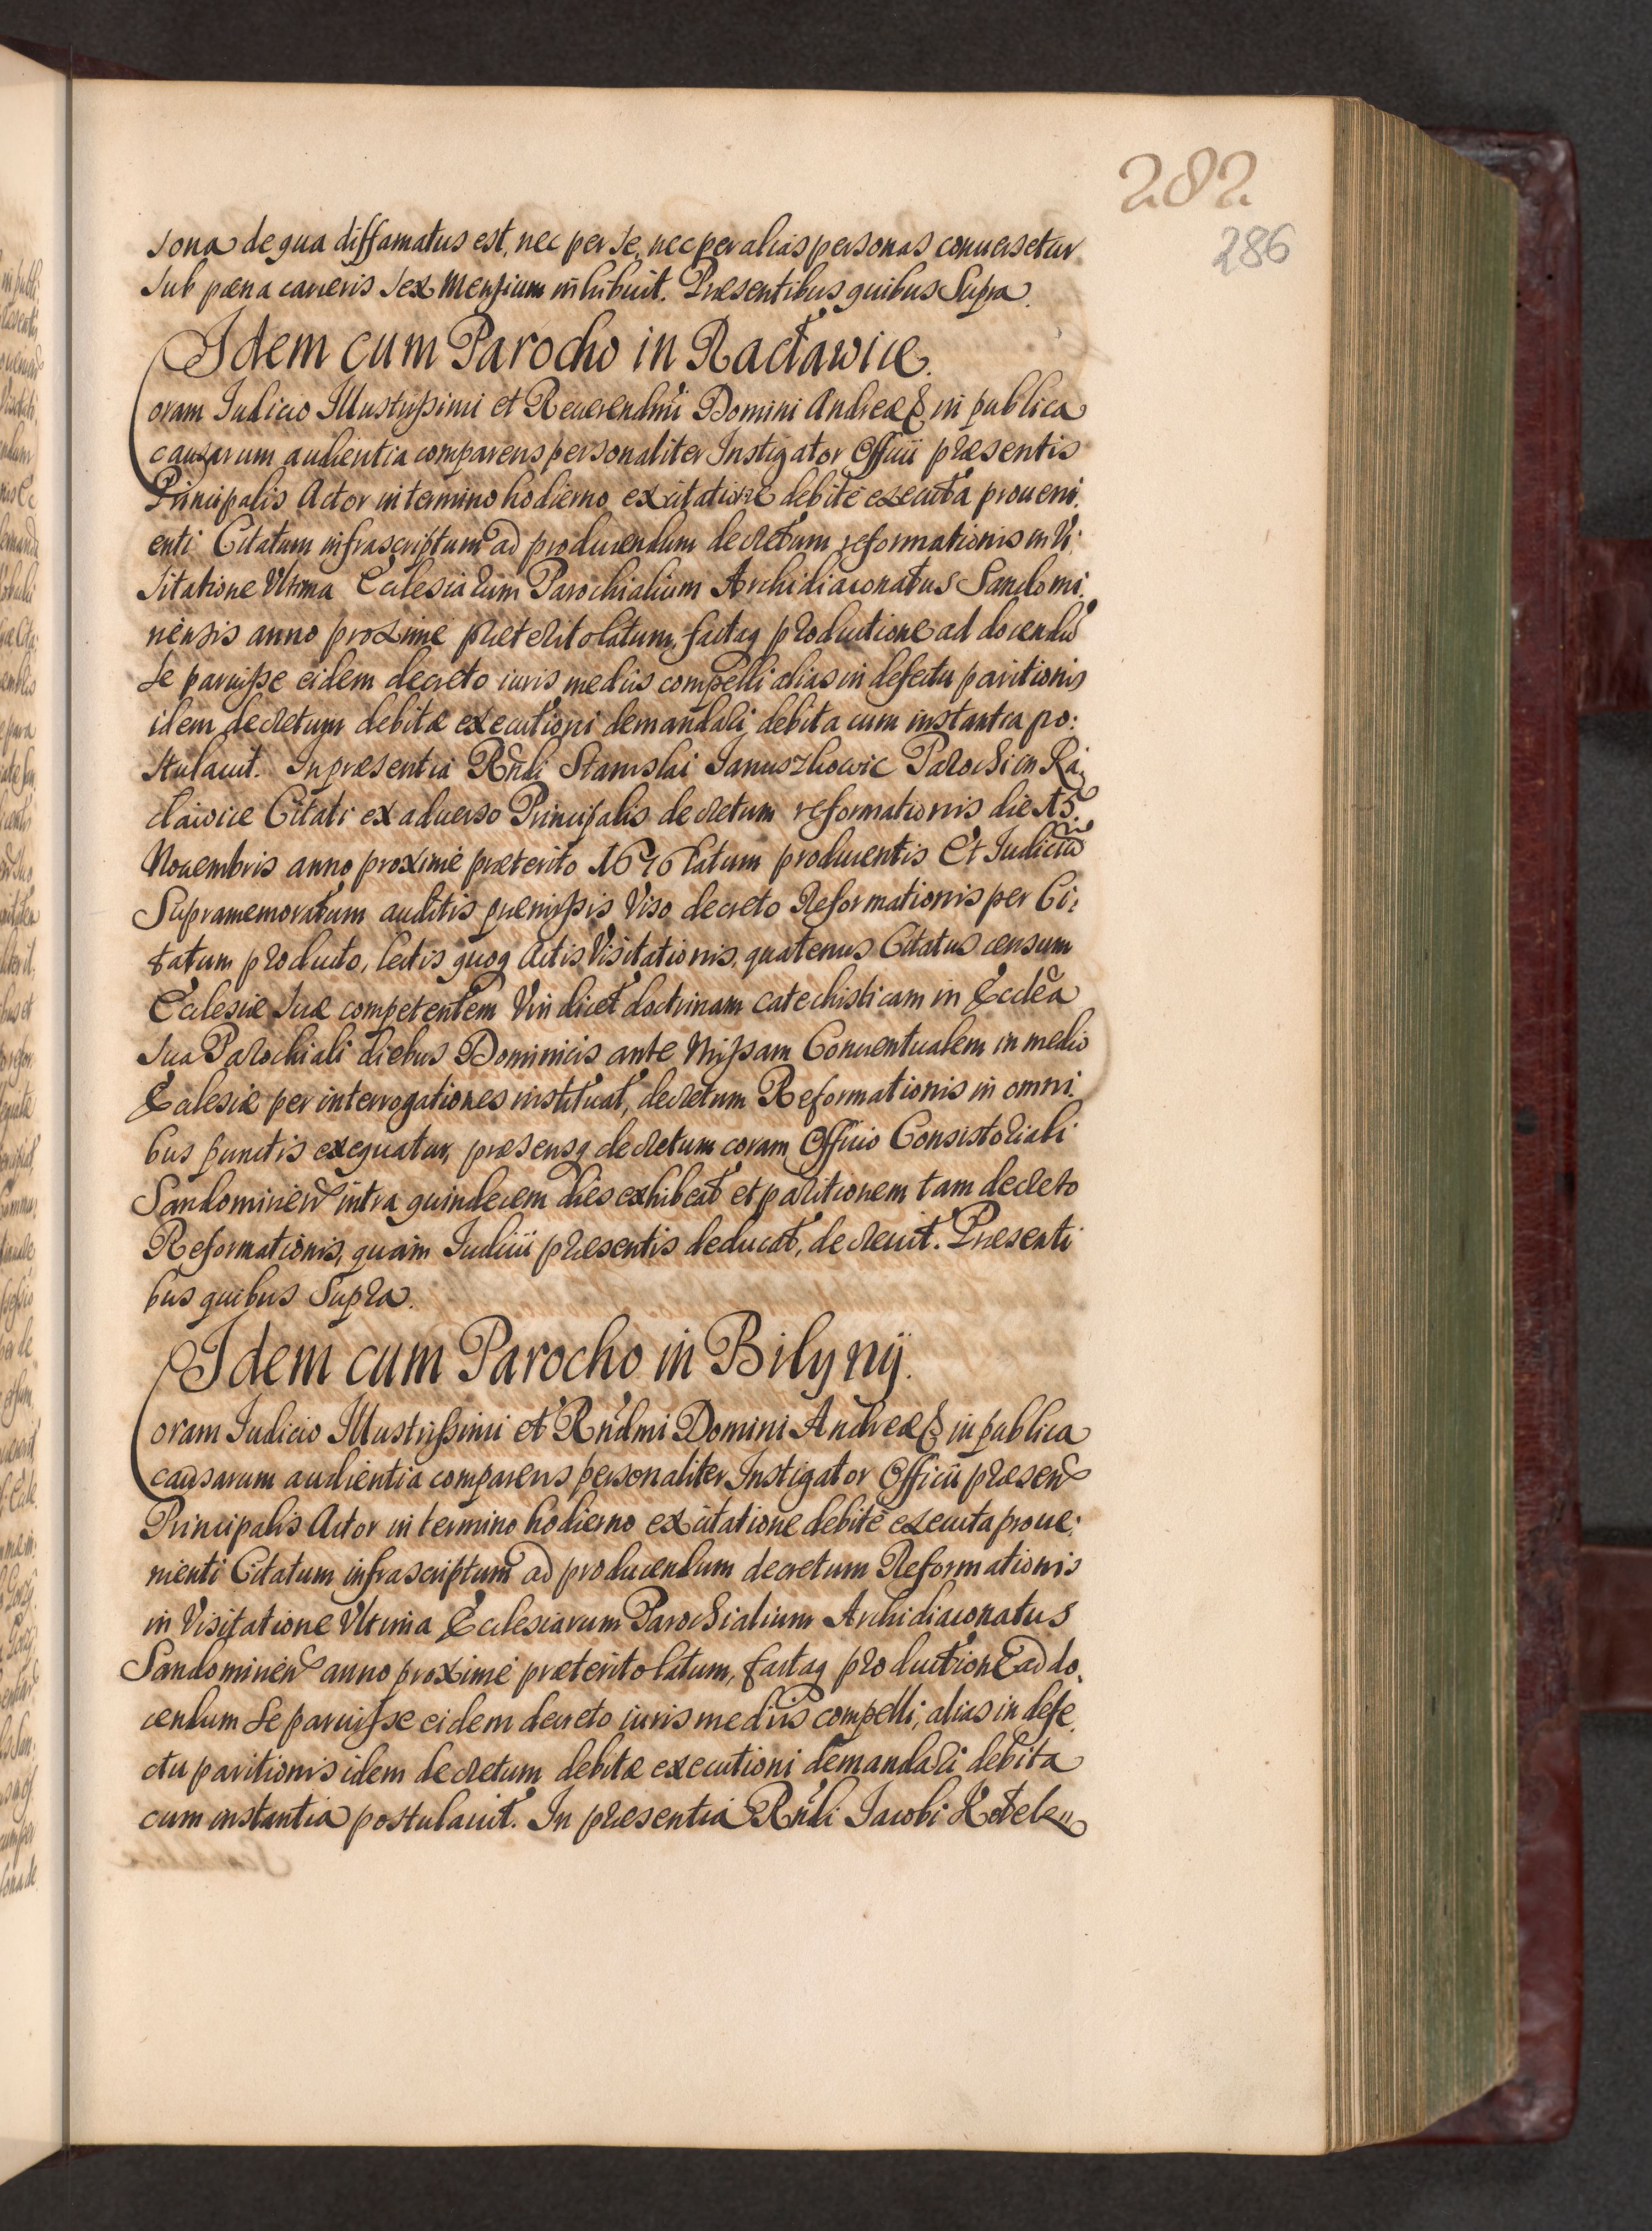 282
286
sona de qua diffamatus est, nec per se, nec per alias personas conuersetur
sub pæna carceris sex Mensium inhibuit. Præsentibus quibus Supra.
Idem cum Parocho in Racławice.
Coram Iudicio Illustrissimi et Reuerendmi Domini Andreæ & in publica
causarum audientia comparens personaliter Instigator Officii præsentis
Principalis Actor in termino hodierno ex citatione debite executa proueni:
enti Citatum infrascriptum ad producendum decretum reformationis in Vi:
sitatione Vltima Ecclesiarum Parochialium Archidiaconatus Sandomi:
riensis anno proxime præterito latum, factaq productione ad docendũ
se paruisse eidem decreto iuris mediis compelli alias in defectu paritionis
idem decretum debitæ executioni demandari, debita cum instantia po:
stulauit. In præsentia Rndi Stanislai Ianuszkowic Parochi in Ra:
cławice Citati ex aduerso Principalis decretum reformationis die 15.
Nouembris anno proxime præterito 1676 latum producentis Et Iudiciũ
Supramemoratum auditis præmissis Viso decreto Reformationis per Ci:
tatum producto, lectis quoq Actis Visitationis, quatenus Citatus censum
Ecclesiæ suæ competentem Vindicet doctrinam catechisticam in Ecclẽa
sua Parochiali diebus Dominicis ante Missam Conuentualem in medio
Ecclesiæ per interrogationes instituat, decretum Reformationis in omni:
bus punctis exequatur, præsensq decretum coram Officio Consistoriali
Sandomirien intra quindecem dies exhibeat et paritionem tam decreto
Reformationis, quam Iudicii præsentis deducat, decreuit. Præsenti
bus quibus Supra.
Idem cum Parocho in Bilyny.
Coram Iudicio Illustrissimi et Rndmi Domini Andreæ & in publica
causarum audientia comparens personaliter Instigator Officii præsen
Principalis Actor in termino hodierno ex citatione debite executa proue:
nienti Citatum infrascriptum ad producendum decretum Reformationis
in Visitatione Vltima Ecclesiarum Parochialium Archidiaconatus
Sandomirien anno proxime præterito latum, factaq productione ad do:
cendum se paruisse eidem decreto iuris mediis compelli, alias in defe:
ctu paritionis idem decretum debitæ executioni demandari debita
cum instantia postulauit. In præsentia Rndi Iacobi